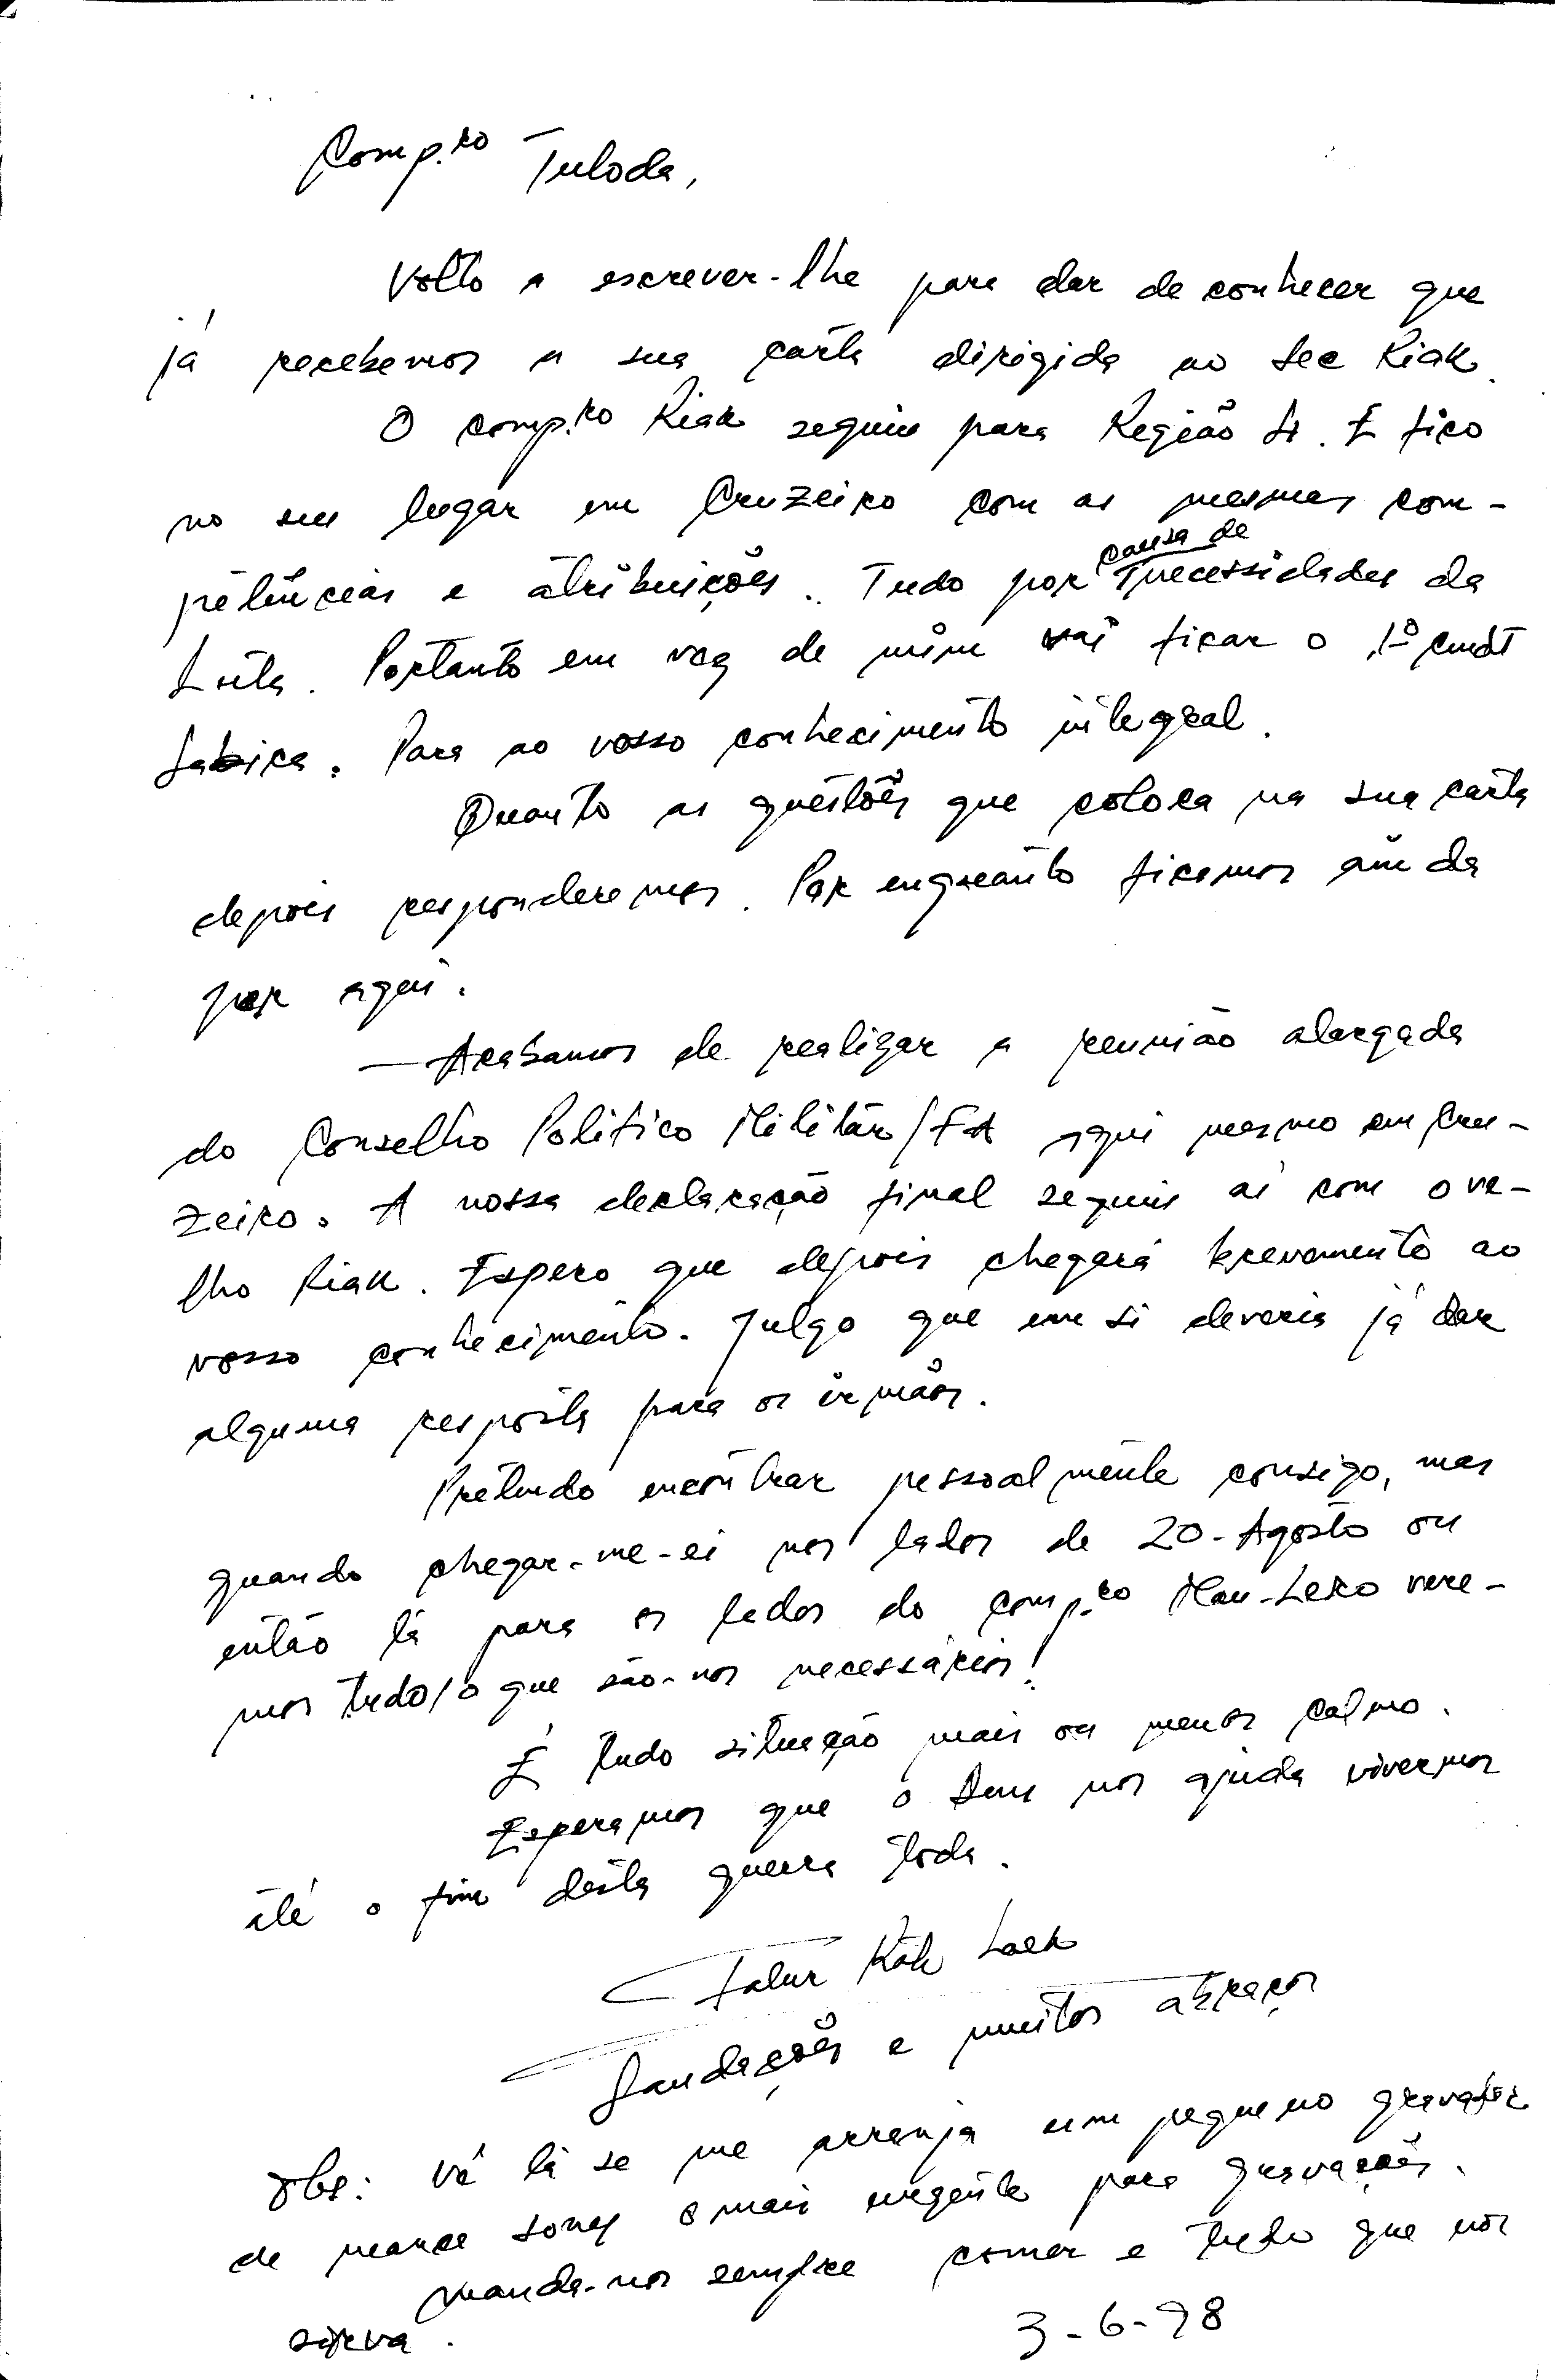 Comp.ro Tuloda,
Volto a escrever-lhe para dar de conhecer que
já recebemos a sua carta dirigida ao Sec Riak.
O comp.ro Riak seguiu para Região A. E fico
no seu lugar em Cruzeiro com as mesmas com-
petências e atribuições. Tudo por causa de necessidades da
Luta. Portanto em vez de mim vai ficar o 1º cmdt
Sabica. Para ao vosso conhecimento integral.
Quanto as questões que coloca na sua carta
depois responderemos. Por enquanto ficamos ainda
por aqui.
— Acabamos de realizar a reunião alargada
do Conselho Politico Militar/FA aqui mesmo em Cru-
zeiro. A nossa declaração final seguiu aí com o ve-
lho Riak. Espero que depois chegará brevemente ao
vosso conhecimento. Julgo que em si deveria já dar
alguma resposta para os irmãos.
Pretendo encontrar pessoalmente consigo, mas
quando chegar-me-ei nos lados de 20-Agosto ou
então lá para os lados do comp.ro Mau-Lero vere-
mos tudo/o que são-nos necessários!
É tudo situação mais ou menos calmo.
Esperamos que o Deus nos ajuda vivermos
até o fim desta guerra toda.
Falur Rate Laek
Saudações e muitos abraços
Obs: Vê lá se me arranja um pequeno gravador
de marca sony o mais urgente para gravações.
Manda-nos sempre comer e tudo que nos
sirva.
3-6-98